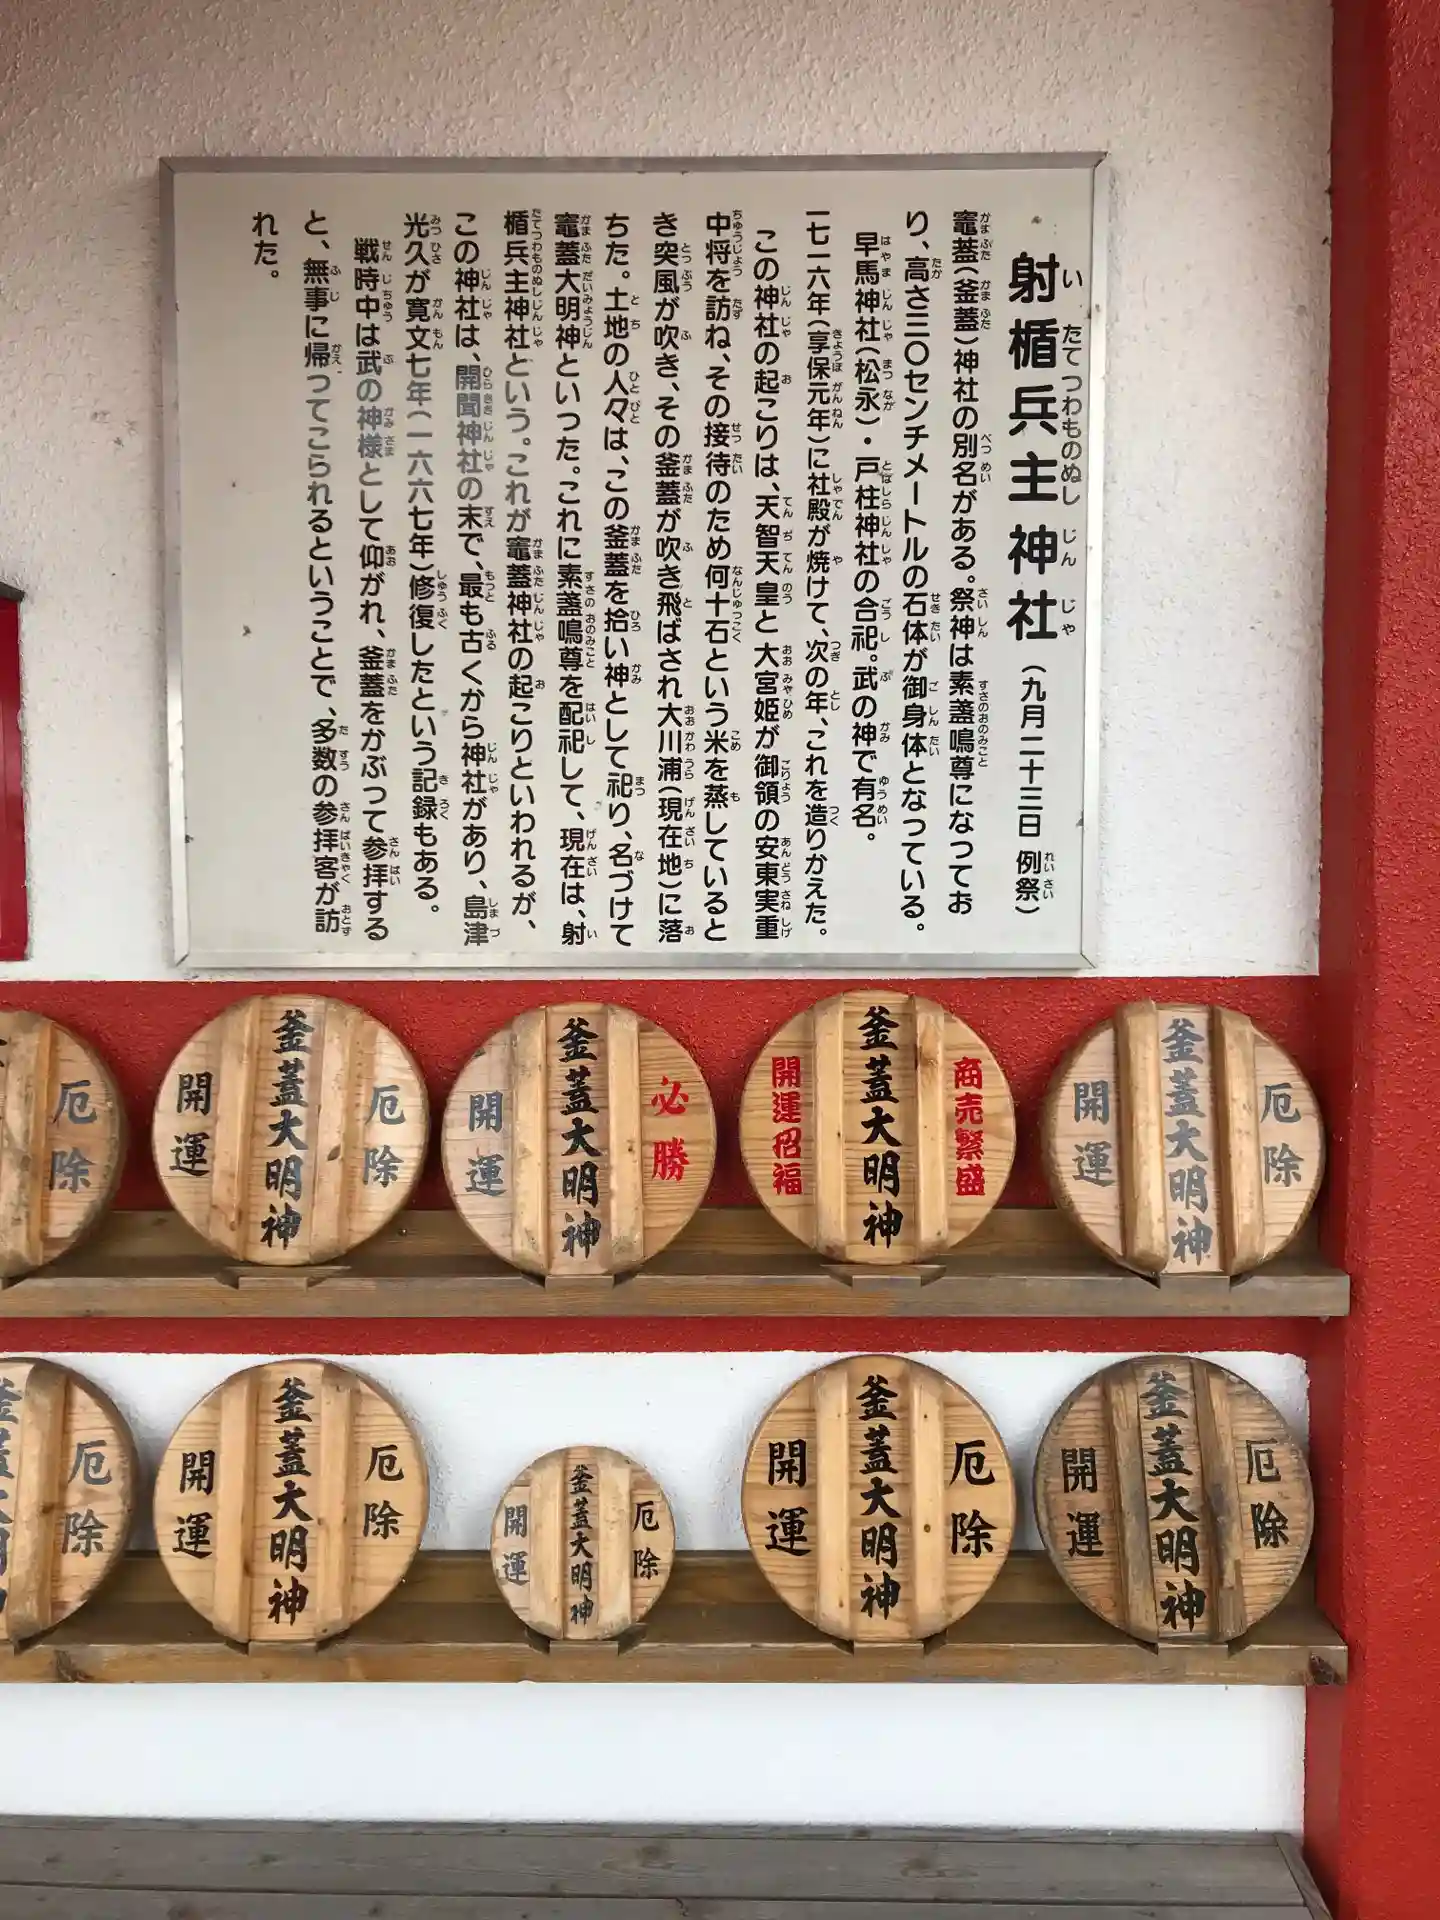 射楯兵主神社(九月二十三日 例祭)
いたてつわものぬしじんじゃ
れいさい
竈蓋(釜蓋)神社の別名がある。祭神は素盞嗚尊になってお
り、高さ三〇センチメートルの石体が御身体となっている。
早馬神社(松永)・戸柱神社の合祀。武の神で有名。
一七一六年(享保元年)に社殿が焼けて、次の年、これを造りかえた。
この神社の起こりは、天智天皇と大宮姫が御領の安東実重
中将を訪ね、その接待のため何十石という米を蒸していると
き突風が吹き、その釜蓋が吹き飛ばされ大川浦(現在地)に落
ちた。土地の人々は、この釜蓋を拾い神として祀り、名づけて
竈蓋大明神といった。これに素盞嗚尊を配祀して、現在は、射
楯兵主神社という。これが竈蓋神社の起こりといわれるが、
この神社は、開聞神社の末で、最も古くから神社があり、島津
光久が寛文七年(一六六七年)修復したという記録もある。
戦時中は武の神様として仰がれ、釜蓋をかぶって参拝する
と、無事に帰ってこられるということで、多数の参拝客が訪
れた。
厄除
釜蓋大明神
開運
商売繁盛
釜蓋大明神
開運招福
必勝
釜蓋大明神
開運
厄除
釜蓋大明神
開運
厄除
厄除
釜蓋大明神
開運
厄除
釜蓋大明神
開運
厄除
釜蓋大明神
開運
厄除
釜蓋大明神
開運
厄除
釜蓋大明神